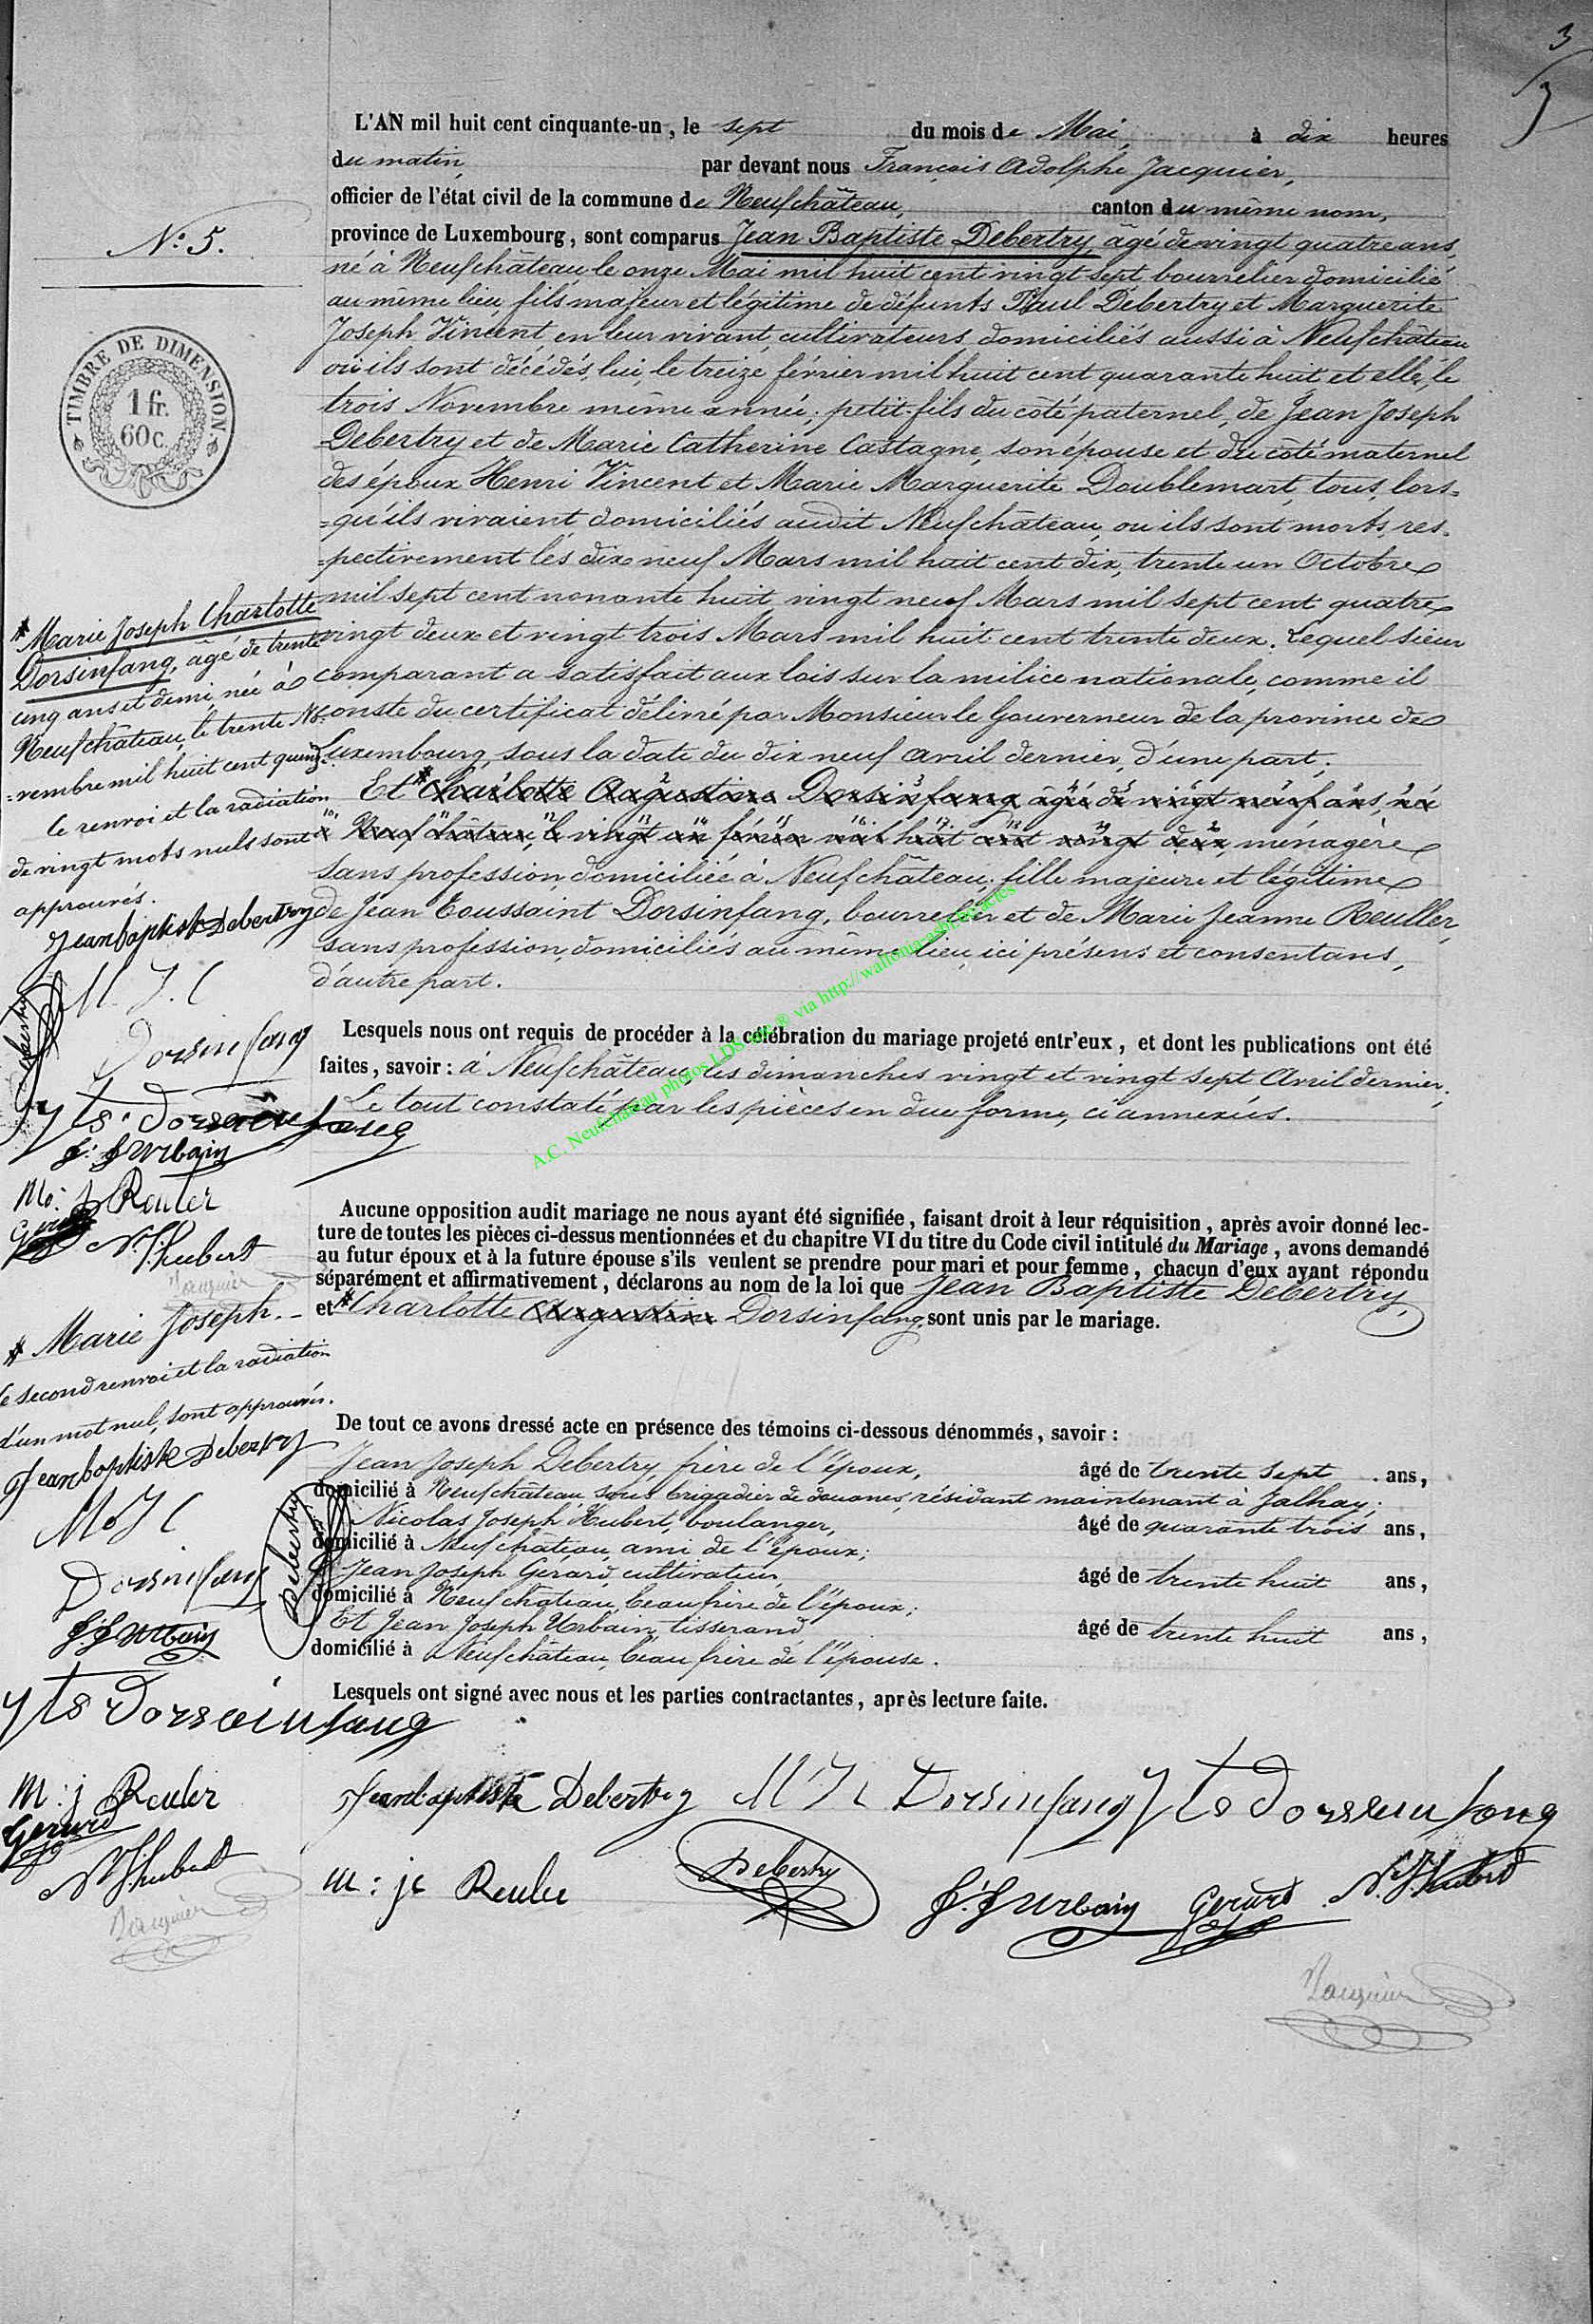 3
3
L'AN mil huit cent cinquante-un, le sept du mois de Mai, à dix heures
du matin, par devant nous François Adolphe Jacquier,
officier de l'état civil de la commune de Neufchâteau, canton du même nom,
province de Luxembourg, sont comparus Jean Baptiste Debertry, âgé de vingt quatre ans,
né à Neufchâteau, le onze Mai mil huit cent vingt sept, bourrelier domicilié
au même lieu, fils majeur et légitime de défunts Paul Debertry et Marguerite
Joseph Vincent, en leur vivant, cultivateurs, domiciliés aussi à Neufchâteau
où ils sont décédés, lui, le treize février mil huit cent quarante huit et elle, le
trois Novembre même année; petit-fils du côté paternel, de Jean Joseph
Debertry et de Marie Catherine Castagne, son épouse et du côté maternel
des époux Henri Vincent et Marie Marguerite Doublemart, tous, lors=
=qu'ils vivaient, domiciliés audit Neufchâteau, où ils sont morts, res=
=pectivement les dix neuf Mars mil huit cent dix, trente un Octobre
mil sept cent nonante huit vingt neuf Mars mil sept cent quatre
vingt deux et vingt trois Mars mil huit cent trente deux. Lequel sieur
comparant a satisfait aux lois sur la milice nationale, comme il
conste du certificat délivré par Monsieur le Gouverneur de la province de
Luxembourg, sous la date du dix neuf avril dernier, d'une part;
Et * Charlotte Augustine Dorsinfang âgée de vingt neuf ans, née
à Neufchâteau, le vingt un février mil huit cent vingt deux, ménagère
sans profession, domiciliée à Neufchâteau, fille majeure et légitime
de Jean Toussaint Dorsinfang, bourrelier et de Marie Jeanne Reuller,
sans profession, domiciliés au même lieu, ici présens et consentans,
d'autre part.
Lesquels nous ont requis de procéder à la célébration du mariage projeté entr'eux, et dont les publications ont été
faites, savoir : à Neufchâteau, les dimanches vingt et vingt sept Avril dernier;
Le tout constaté par les pièces en due forme, ci annexées.
Aucune opposition audit mariage ne nous ayant été signifiée, faisant droit à leur réquisition, après avoir donné lec-
ture de toutes les pièces ci-dessus mentionnées et du chapitre VI du titre du Code civil intitulé du Mariage, avons demandé
au futur époux et à la future épouse s'ils veulent se prendre pour mari et pour femme, chacun d'eux ayant répondu
séparément et affirmativement, déclarons au nom de la loi que Jean Baptiste Debertry,
et * Charlotte Augustine Dorsinfang, sont unis par le mariage.
De tout ce avons dressé acte en présence des témoins ci-dessous dénommés, savoir :
Jean Joseph Debertry, frère de l'époux, âgé de trente sept ans,
domicilié à Neufchâteau, sous brigadier de douanes, résidant maintenant à Jalhay;
Nicolas Joseph Hubert, boulanger, âgé de quarante trois ans,
domicilié à Neufchâteau, ami de l'époux;
Jean Joseph Gerard, cultivateur, âgé de trente huit ans,
domicilié à Neufchâteau, beau frère de l'époux;
Et Jean Joseph Urbain, tisserand âgé de trente huit ans,
domicilié à Neufchâteau, beau frère de l'épouse.
Lesquels ont signé avec nous et les parties contractantes, après lecture faite.
Jeanbaptiste Debertry M J C Dorsinfang Jts Dorseinfang
m: je Reuler Debertry J. J Urbain Gerard N. J. hubert
Jacquier
N.º 5.
TIMBRE DE DIMENSION
1 fr.
60 c.
* Marie Joseph Charlotte
Dorsinfang, âgé de trente
cinq ans et demi, née à
Neufchâteau, le trente No=
=vembre mil huit cent quinze.
le renvoi et la radiation
de vingt mots nuls sont
approuvés.
Jeanbaptiste Debertry
M. J. C
Dorsinfang
Debertry
Jts Dorseinfang
J. J Urbain
M. j Reuler
Gerard
N. J. hubert
Jacquier
* Marie Joseph.
le second renvoi et la radiation
d'un mot nul, sont approuvés.
Jeanbaptiste Debertry
M J C
Dorsinfang
Debertry
J. J Urbain
Jts Dorseinfang
M: j Reuler
Gerard
N. J. hubert
Jacquier